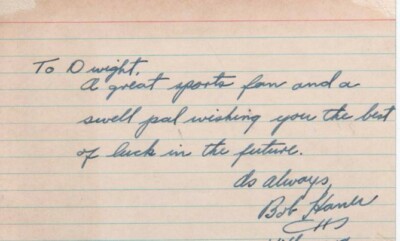 To Dwight,
A great sports fan and a
swell pal wishing you the best
of luck in the future.
As always,
Bob
CHS